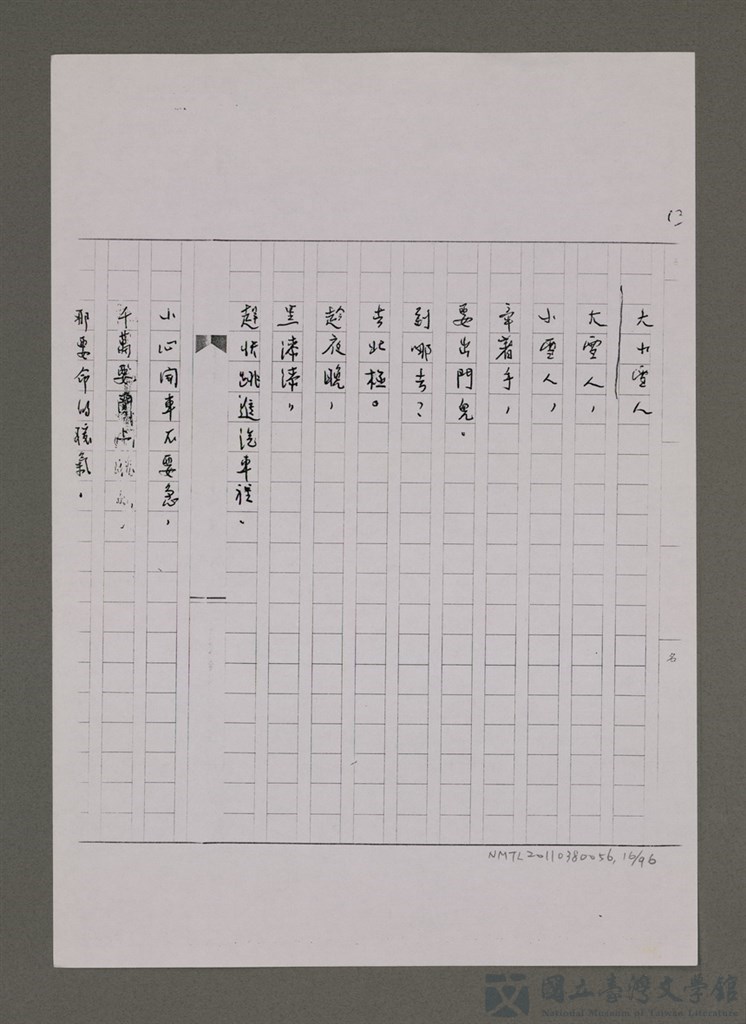 大小雪人
大雪人，
小雪人，
牽著手，
要出門兒。
到哪去？
去北極。
趁夜晚，
黑漆漆，
趕快跳進汽車裡。
小心開車不要急，
千萬要
那要命的暖氣。
名
NMTL20110380056, 16/96
國立臺灣文學館
National Museum of Taiwan Literature